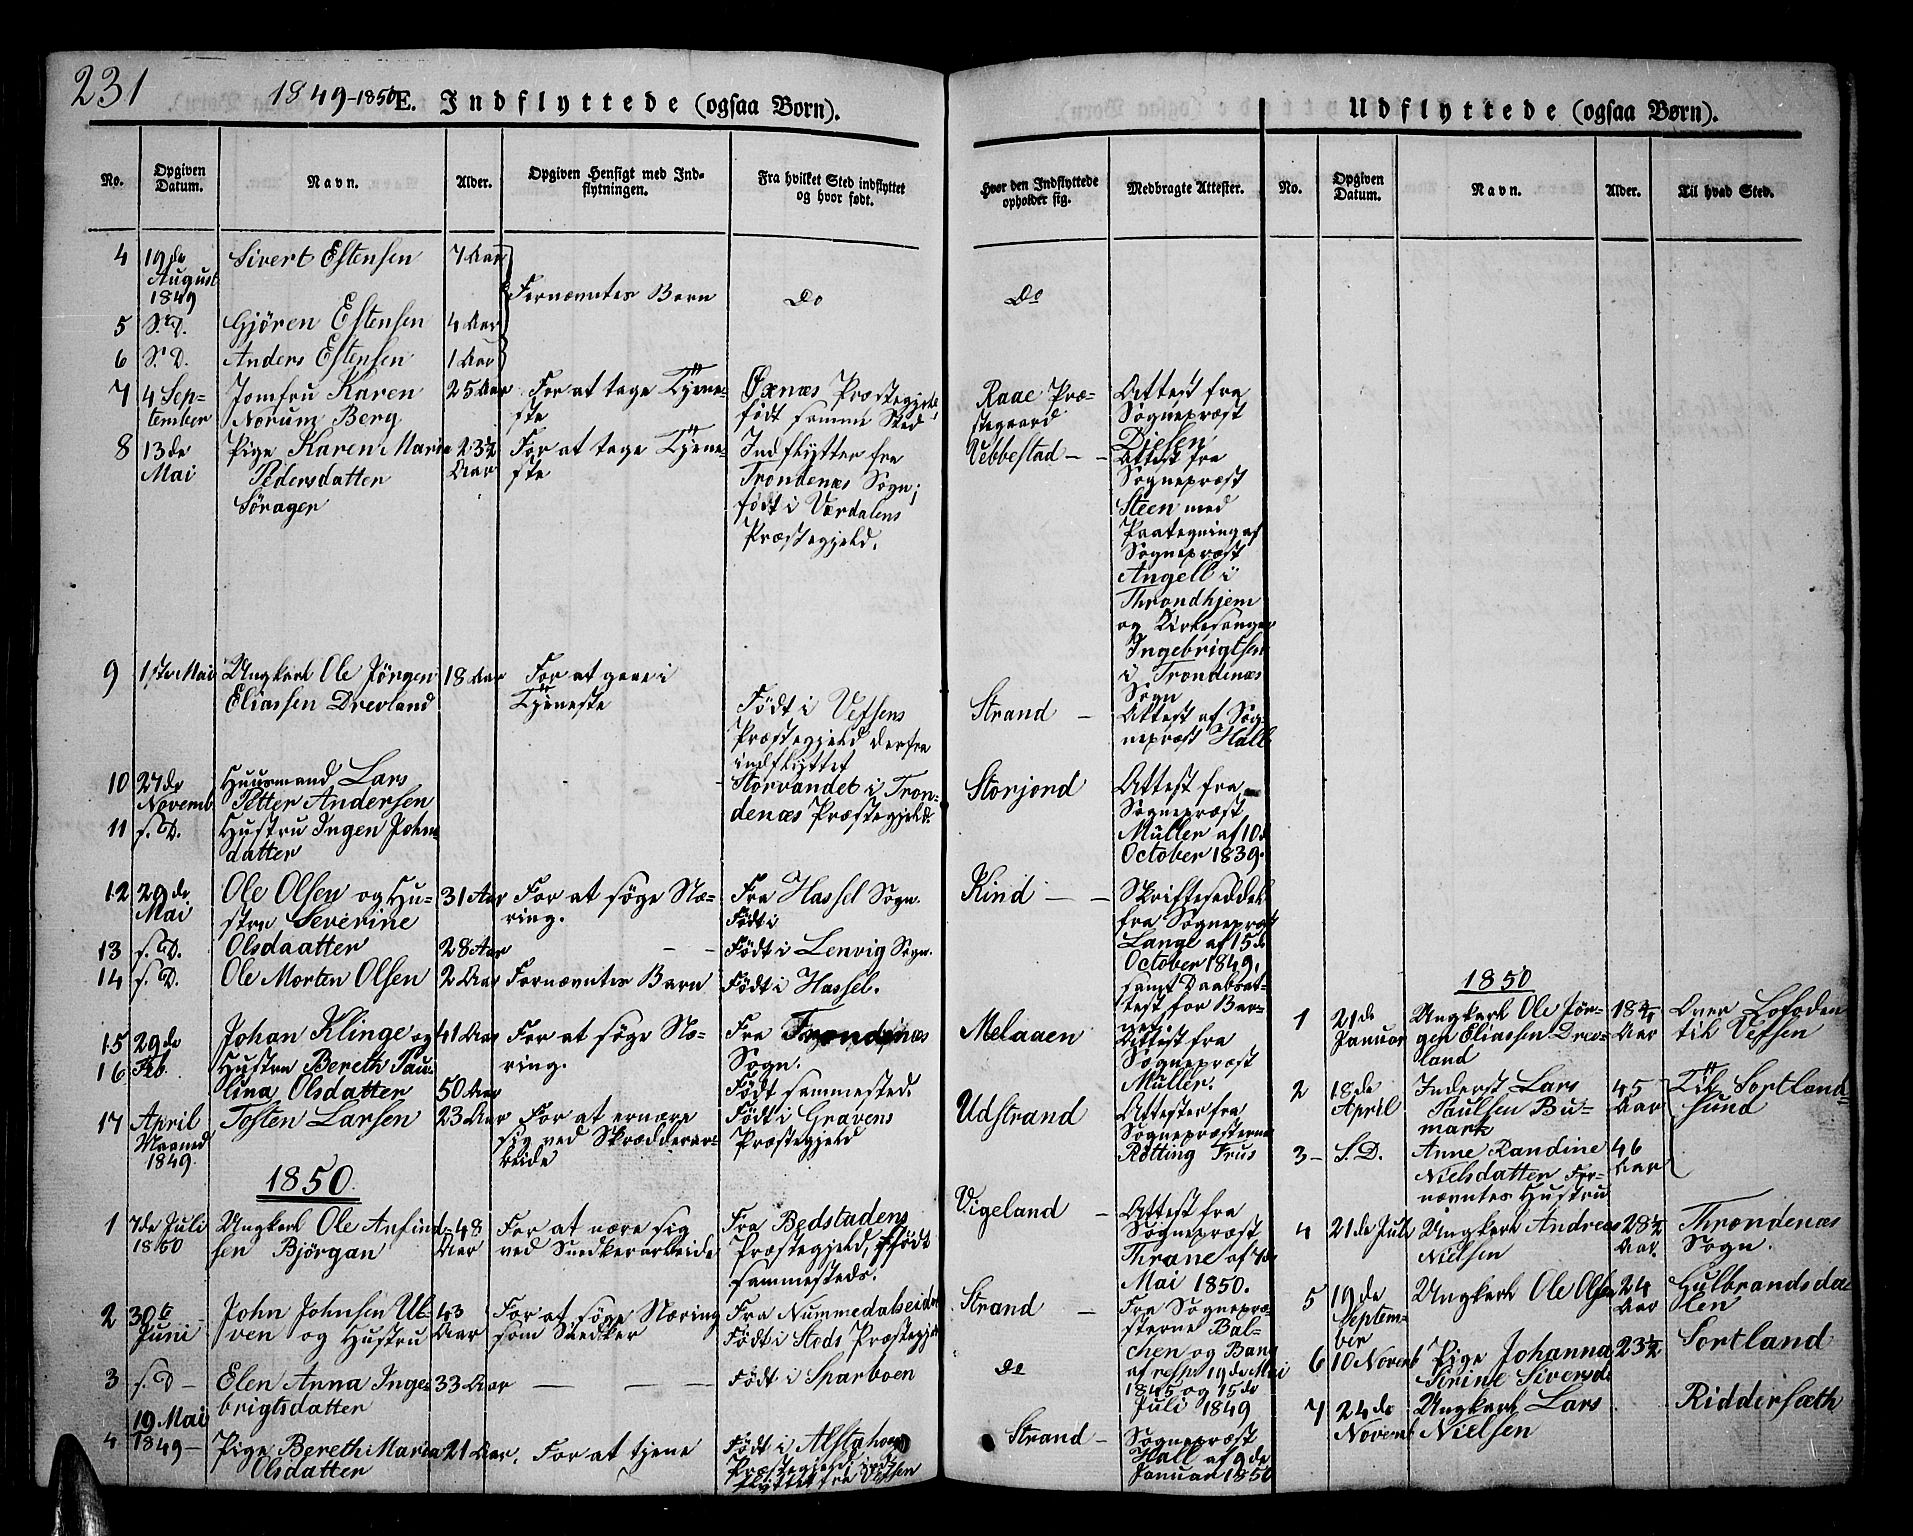 231
1849-1850 E. Indflyttede (ogsaa Børn).
No.
Opgiven Datum.
Navn.
Alder.
Opgiven Hensigt med Ind-
flytningen.
Fra hvilket Sted indflyttet
og hvor født.
4 19de August 1849 Sivert Estensen 7 Aar
Fornævntes Børn Do
5 S. D. Gjören Estensen 4 Aar
6 S. D. Anders Estensen 1 Aar
7 4 Sep- Jomfru Karen 25 Aar For at tage Tjene- Øxnæs Præstegjeld
tember Norum Berg ste født samme Sted
8 13de Pige Karen Marie 23½ For at tage Tjene- Indflytter fra
Mai Pedersdatter Aar ste Trondenæs Sogn;
Söragen født i Værdalens
Præstegjeld.
9 1ste Mai Ungkarl Ole Jörgen 18 Aar For at gaae i
Eliassen Drevland Tjeneste Født i Vefsens
Præstegjeld derfra
indflyttet
10 27de Huusmand Lars Storvandet i Tron-
Novemb Petter Andersen denæs Præstegjeld.
11 s. D. Hustru Ingen Johns
datter
12 29de Ole Olsen og Hu- 31 Aar For at søge Næ- Fra Hassel Sogn.
Mai stru Severine ring. Født i
13 s. D. Olsdaatter 28 Aar — — Født i Lenvig Sogn.
14 s. D. Ole Morten Olsen 2 Aar Fornævntes Barn Født i Hassel.
15 29de Johan Klinge og 41 Aar For at søge Næ- Fra Trondenæs
16 Feb. Hustru Bereth Pau- ring. Sogn.
lina Olsdatter 50 Aar Født sammested.
17 April Tosten Larsen 23 Aar For at ernære Født i Gravens
Maaned sig ved Skrædderar- Præstegjeld
1849. beide
1850.
1 7de Juli Ungkarl Ole Anfind- 48 For at nære sig Fra Bedstadens
1850 sen Björgan Aar ved Snedkerarbeide Præstegjeld, født
sammesteds.
2 30te John Johnsen Ul- 43 For at søge Næring Fra Nummedalseidet
Juni ven og Hustru Aar som Snedker Født i Stods Præstegjeld
3 s. D — Elen Anna Inge- 33 Aar — — — Født i Sparboen
brigtsdatter
19 Mai
4 1849 — Pige Bereth Maria 21 Aar. For at tjene Født i Alstahoug
Olsdatter Præstegjeld ind-
flyttet fra Vefsen
Hvor den Indflyttede
opholder sig.
Medbragte Attester.
Do
Raae Præ- Attest fra
stegaard Sognepræst
Dielen
Vebbestad — — Attest fra
Sognepræst
Steen med
Paategning af
Sognepræst
Angell i
Throndhjem
og Kirkesanger
Ingebrigtsen
i Trondenæs
Sogn
Strand — Attest af Sog-
nepræst Hall
Storjord Attest fra
Sognepræst
Müller af 10de
October 1839.
Kind — — Skrifteseddel
fra Sognepræst
Lange af 15de
October 1849,
samt Daabsat-
test for Bar-
net
Melaaen Attest fra
Sognepræst
Müller.
Udstrand Attester fra
Sognepræsterne
Rötting Frus
Vigeland — Attest fra
Sognepræst
Thrane af 7de
Mai 1850.
Strand — Fra Sognepræ-
sterne Bal-
chen og Bang
Do af resp. 19de Mai
1845 og 15de
Juli 1849
Strand — Sognepræst
Hall af 9de
Januar 1850
Udflyttede (ogsaa Børn).
No.
Opgiven Datum.
Navn.
Alder.
Til hvad Sted.
1850
1 21de Ungkarl Ole Jör- 18¾ Over Lofoden
Januar gen Eliassen Drev- Aar til Vefsen
land
2 18de Inderst Lars 45 Til Sortland-
April Paulsen Bu- Aar sund
mark
3 — S. D. Anne Randine 46
Nielsdatter For- Aar
nævntes Hustru
4 21de Juli Ungkarl Andreas 28½ Throndenæs
Nielsen Aar. Sogn.
5 19de Ungkarl Ole Olsen 24 Gulbrandsda-
Septem- Aar len
ber
6 10 Novemb Pige Johanna 23½ Sortland
Sirine Siversd.
7 24de Ungkarl Lars Riddersæth
Novemb Nielsen